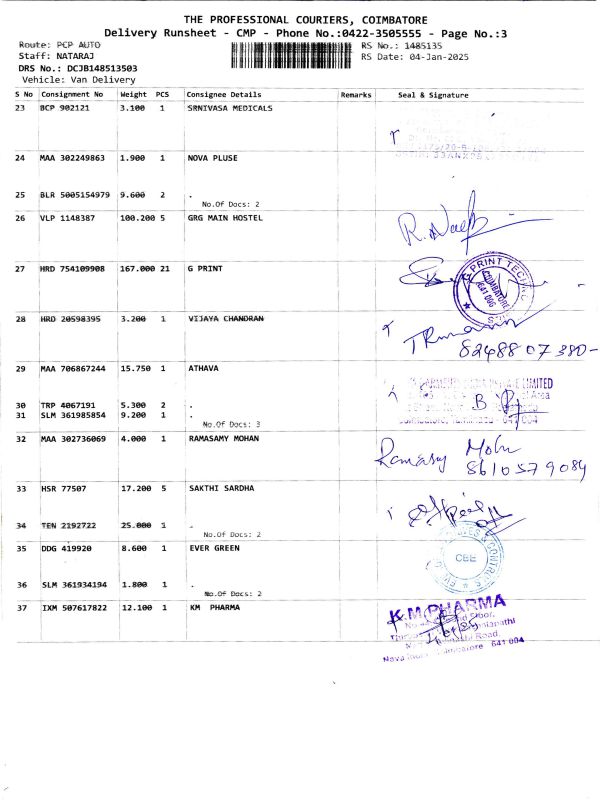 THE PROFESSIONAL COURIERS, COIMBATORE
Delivery Runsheet - CMP - Phone No.:0422-3505555 - Page No.:3
Route: PCP AUTO
RS No.: 1485135
Staff: NATARAJ
RS Date: 04-Jan-2025
DRS No.: DCJB148513503
Vehicle: Van Delivery
S No Consignment No Weight PCS Consignee Details Remarks Seal & Signature
23 BCP 902121 3.100 1 SRNIVASA MEDICALS
24 MAA 302249863 1.900 1 NOVA PLUSE
25 BLR 5005154979 9.600 2 .
No.Of Docs: 2
26 VLP 1148387 100.200 5 GRG MAIN HOSTEL
27 HRD 754109908 167.000 21 G PRINT
PRINT TECHNO
COIMBATORE
641 006
28 HRD 20598395 3.200 1 VIJAYA CHANDRAN
82488 07 380-
29 MAA 706867244 15.750 1 ATHAVA
LIMITED
30 TRP 4067191 5.300 2 .
31 SLM 361985854 9.200 1 .
No.Of Docs: 3
32 MAA 302736069 4.000 1 RAMASAMY MOHAN
Ramasy Mohn
8610579084
33 HSR 77507 17.200 5 SAKTHI SARDHA
34 TEN 2192722 25.000 1 .
No.Of Docs: 2
35 DDG 419920 8.600 1 EVER GREEN
CBE
36 SLM 361934194 1.800 1 .
No.Of Docs: 2
37 IXM 507617822 12.100 1 KM PHARMA
K.M.PHARMA
Road,
641 004